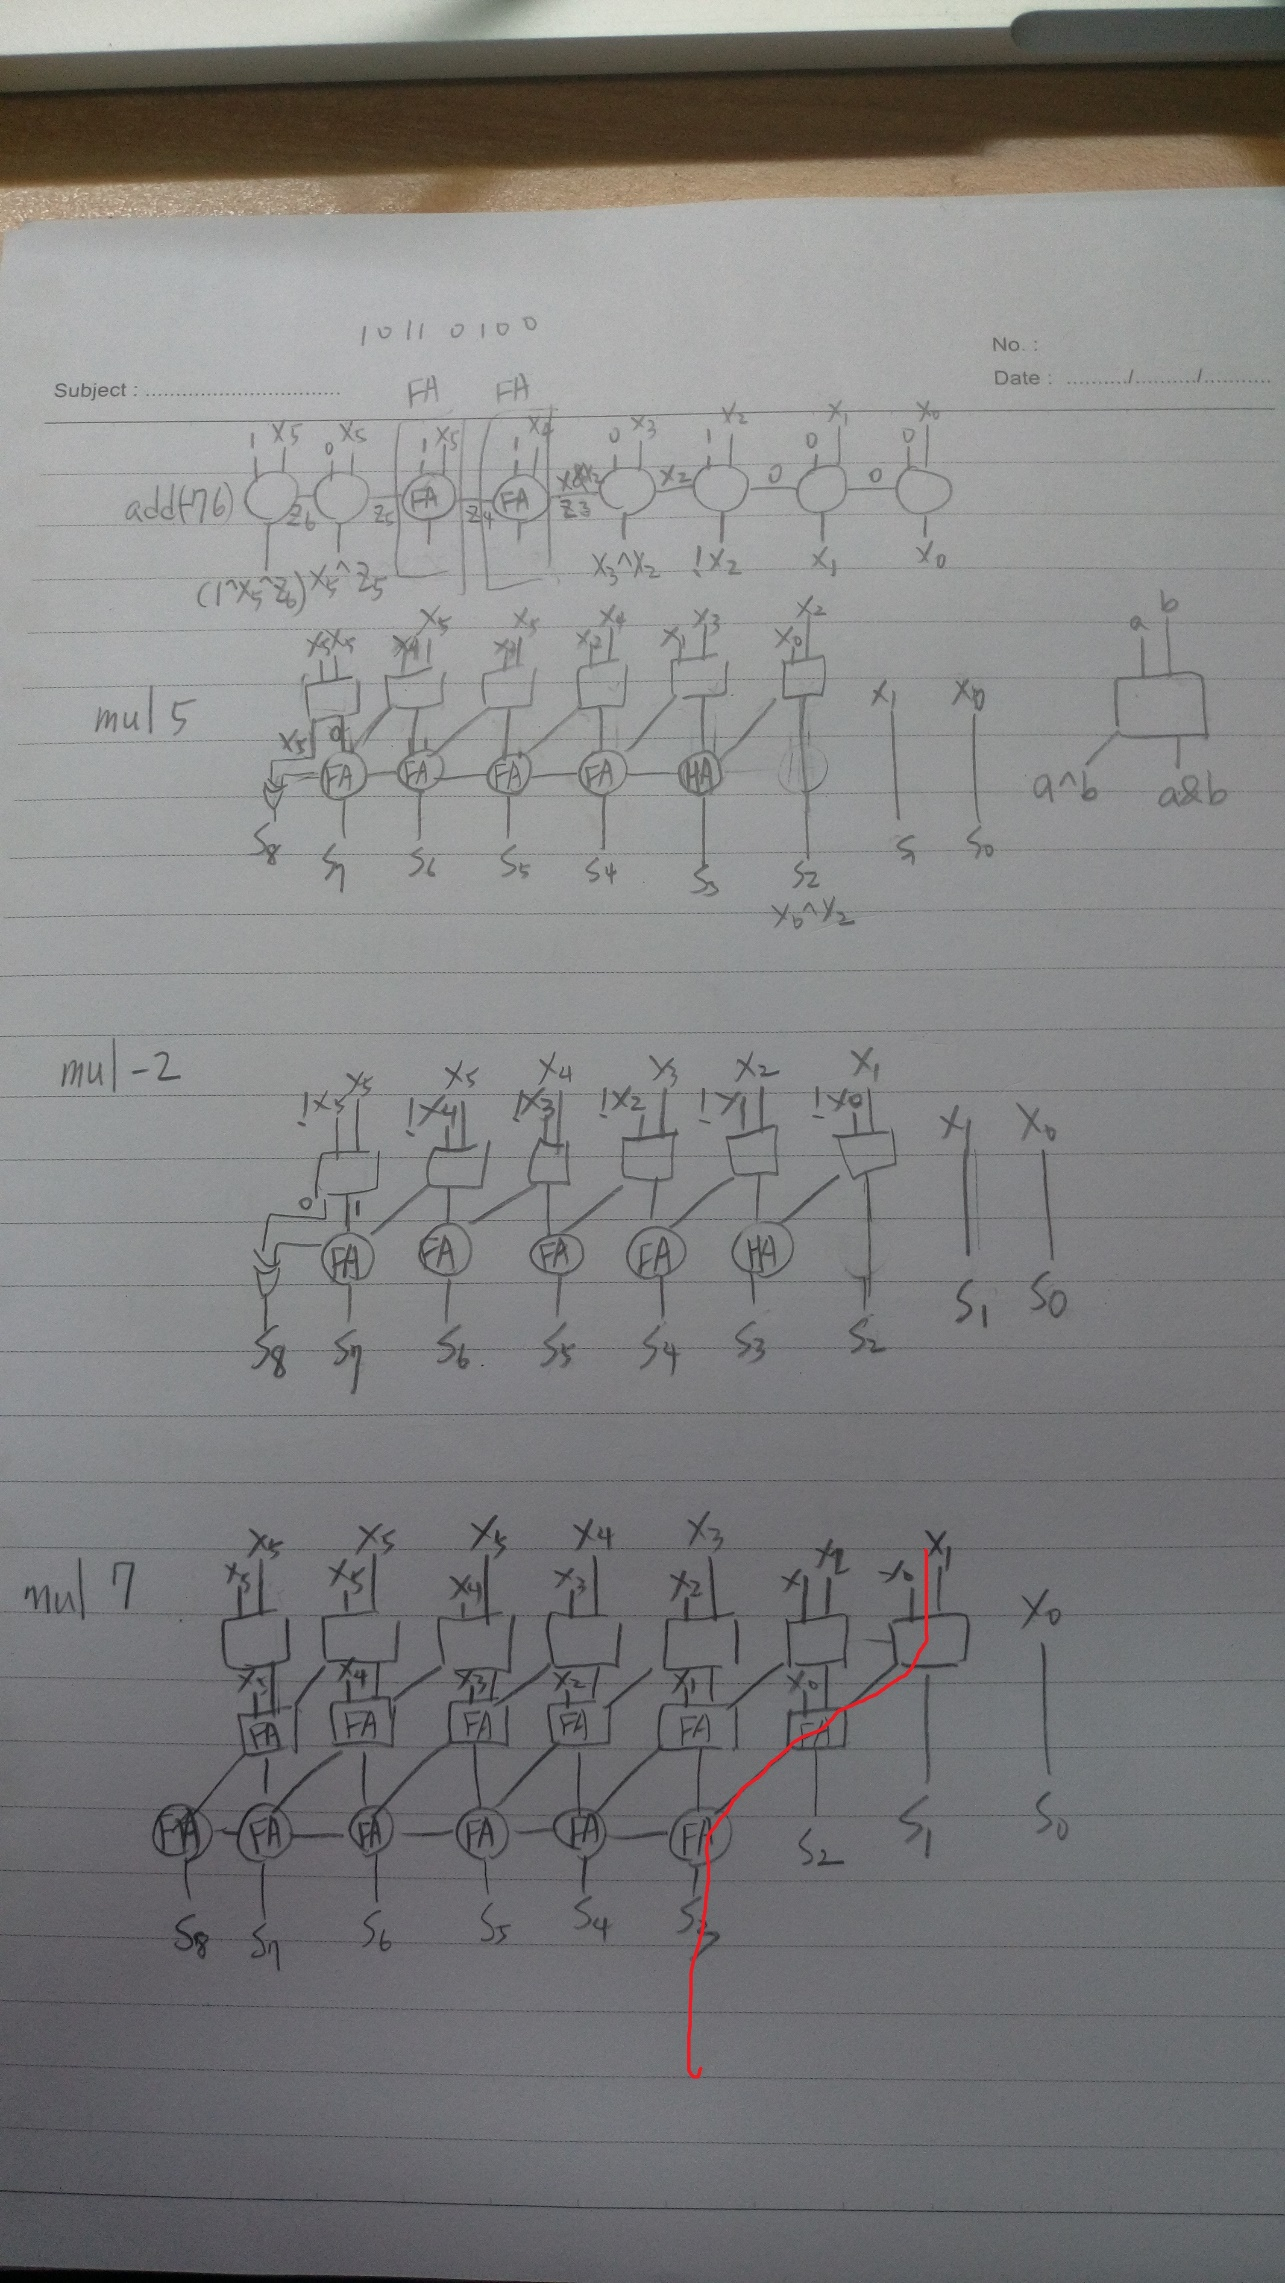 10110100
No. :
Subject :
Date : / /
FA FA
1 X5 0 X5 1 X5 1 X4 0 X3 1 X2 0 X1 0 X0
add(-76) Z6 Z5 FA Z4 FA Z3 X2 0 0
(1^X5^Z6) X5^Z5 X3^X2 !X2 X1 X0
X5 X5 X5 X5 X2 X4 X1 X3 X0 X2 a b
mul 5 X1 X0
X5 0 FA FA FA FA HA a^b a&b
S8 S7 S6 S5 S4 S3 S2 S1 S0
X0^X2
mul -2
!X5 X5 !X4 X5 !X3 X4 !X2 X3 !X1 X2 !X0 X1 X1 X0
0 1
FA FA FA FA HA
S8 S7 S6 S5 S4 S3 S2 S1 S0
mul 7
X5 X5 X5 X5 X4 X5 X3 X4 X2 X3 X1 X2 X0 X1 X0
X5 X4 X3 X2 X1 X0
FA FA FA FA FA FA
FA FA FA FA FA FA
S8 S7 S6 S5 S4 S3 S2 S1 S0